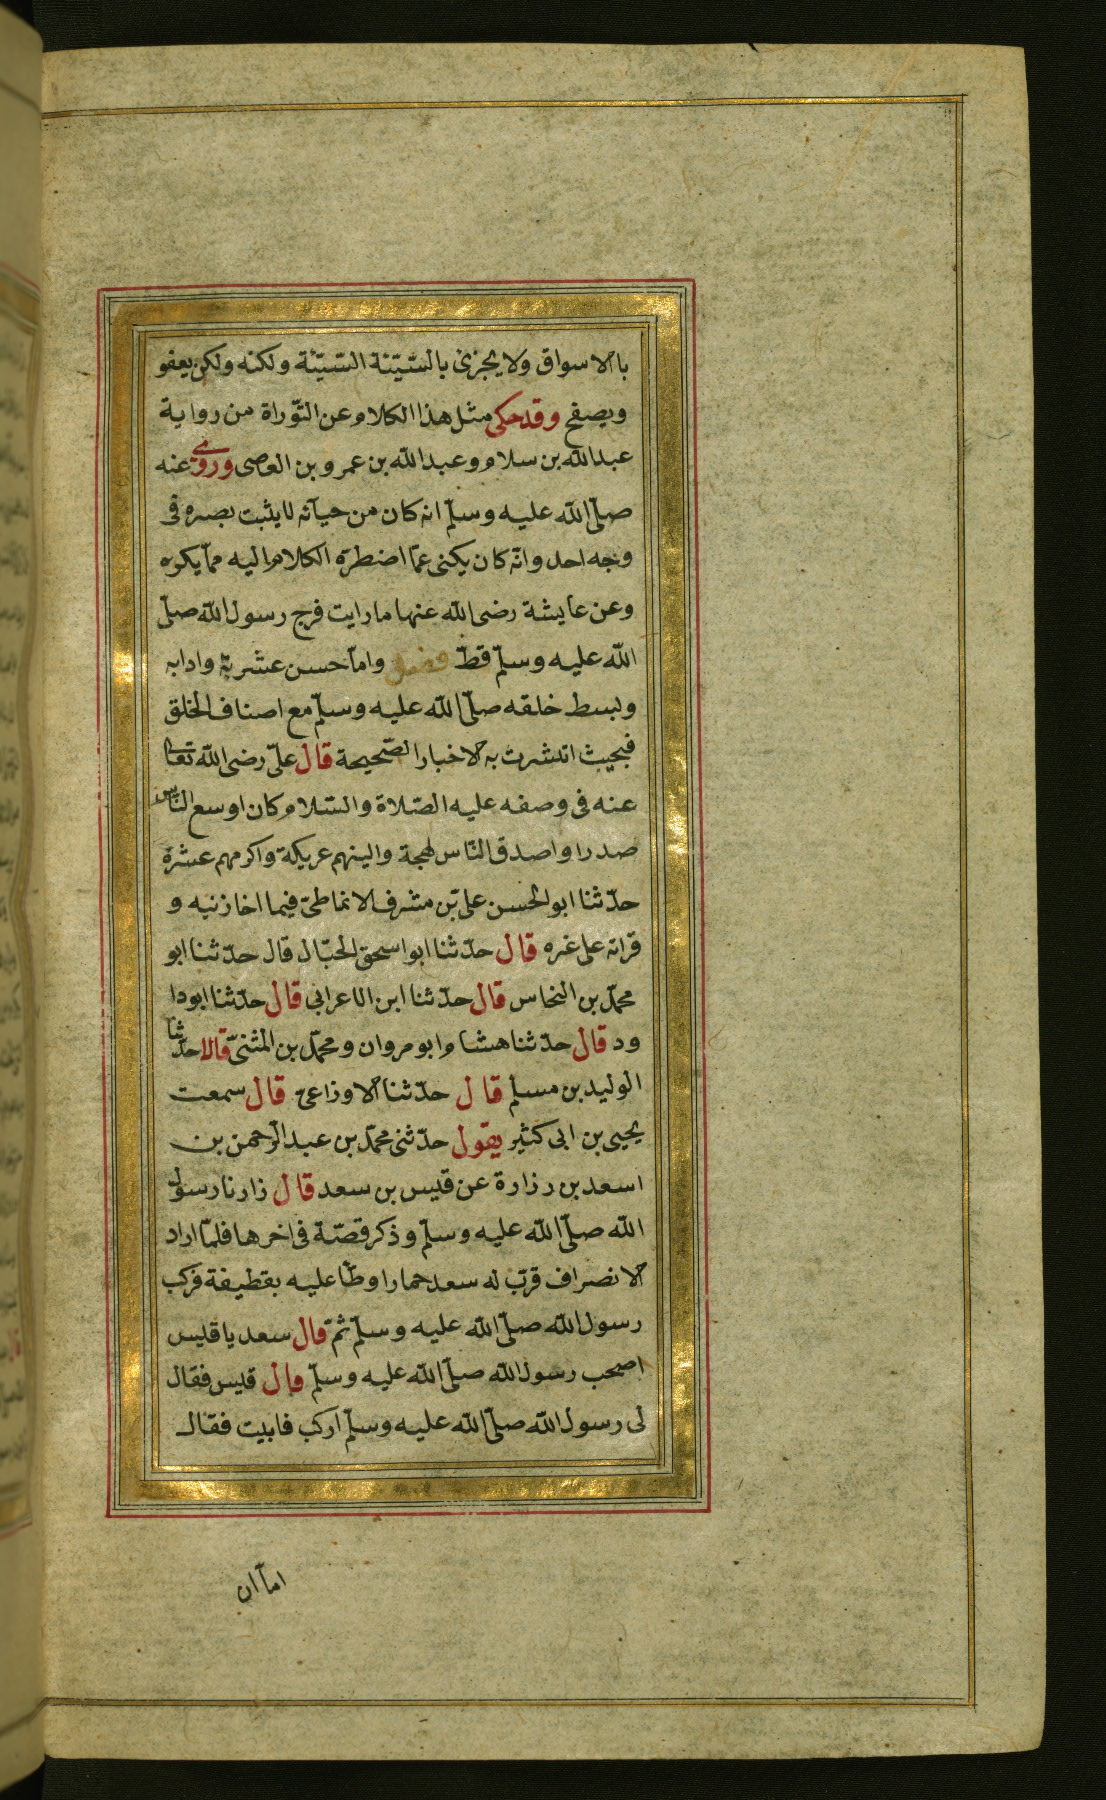 بالاسواق ولا يجزى بالسّيّئة السّيّئة ولكنه ولكن يعفو
ويصفح وقد حكى مثل هذا الكلام عن التّوراة من رواية
عبدالله بن سلام وعبدالله بن عمرو بن العاصى وروى عنه
صلّى الله عليه وسلّم انه كان من حيآئه لا يثبت بصره فى
وجه احد وانّه كان يكنى عمّا اضطرّه الكلام اليه ممّا يكره
وعن عايشة رضى الله عنها ما رايت فرج رسول الله صلّى
الله عليه وسلّم قطّ فصل وامّا حسن عشرته وادابه
وبسط خلقه صلّى الله عليه وسلّم مع اصناف الخلق
فبحيث انتشرت به الاخبار الصّحيحة قال علىّ رضى الله تعالى
عنه فى وصفه عليه الصّلاة والسّلام كان اوسع النّاس
صدرا واصدق النّاس لهجة والينهم عريكة واكرمهم عشرة
حدّثنا ابو الحسن علىّ بن مشرف الانماطىّ فيما اخازنيه و
قراته على غره قال حدّثنا ابو اسحق الحبّال قال حدّثنا ابو
محمّد بن النحاس قال حدّثنا ابن الاعرابى قال حدّثنا ابودا
ود قال حدّثنا هشام ابو مروان ومحمّد بن المثنىّ قالا حدّثنا
الوليد بن مسلم قال حدّثنا الاوزاعىّ قال سمعت
يحيى بن ابى كثير يقول حدّثنى محمّد بن عبد الرّحمن بن
اسعد بن رزارة عن قيس بن سعد قال زارنا رسول
الله صلّى الله عليه وسلّم وذكر قصّة فى اخرها فلمّا اراد
الانصراف قرّب له سعد حمارا وطّا عليه بقطيفة فركب
رسول الله صلّى الله عليه وسلّم ثمّ قال سعد يا قيس
اصحب رسول الله صلّى الله عليه وسلّم قال قيس فقال
لى رسول الله صلّى الله عليه وسلّم اركب فابيت فقال
امآ ان